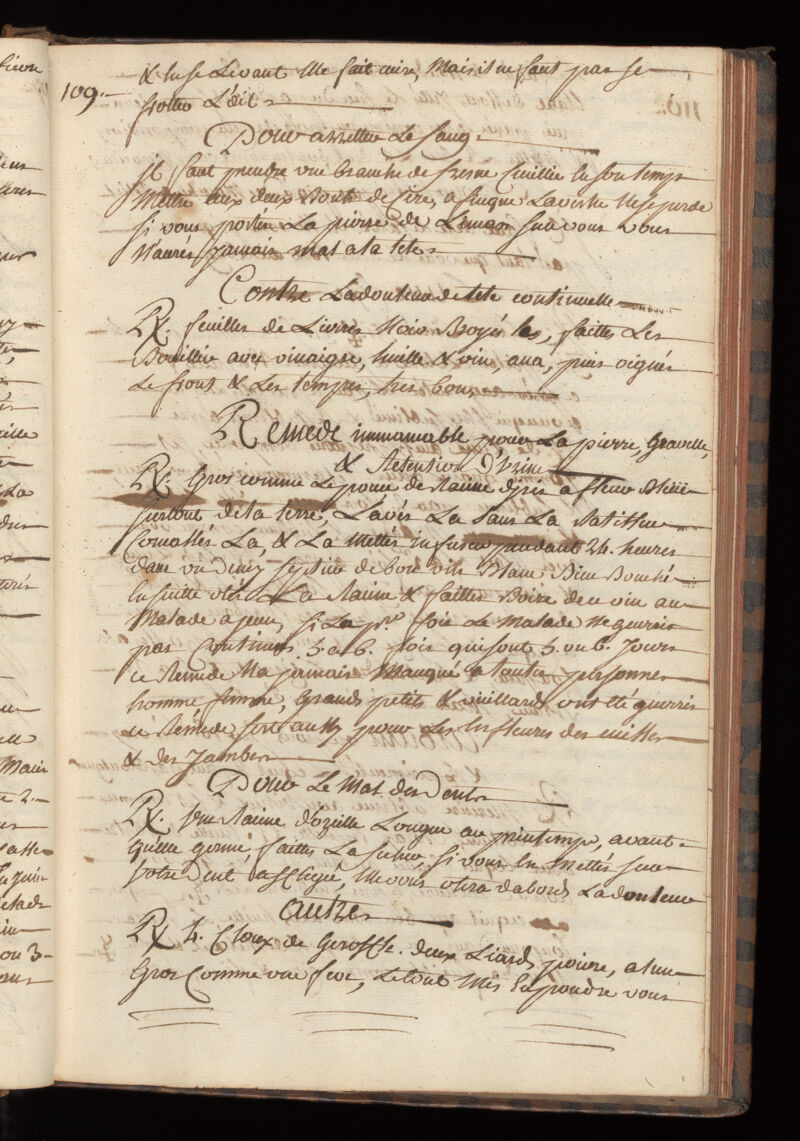 109.
& en se Levant Elle fait cuire, Mais il ne faut pas se
frotter L'œil
Pour arretter Le Sang
il faut prendre une branche de fresne Cueillie En son temps
Mettre aux deux Bouts de Cire, afinque La vertu Ne se perde
si vous portés La pierre de Limas sur vous vous
N'aurés jamais mal a la tete
Contre La douleur de tete continuelle
Rx. feuilles de Lierres Noir Broyés les, faittes Les
Bouillir avec vinaigre, huille & vin, ana, puis oignés
Le front & Les temples, tres bon,
Remede immancable pour La pierre, Gravelle,
& Retention D'Urine
Rx. Gros comme Le pouce de Racine d'iris a fleur Bleüe
sortant de la terre, Lavés La Sans La Ratisser
Concassés La, & La Mettes infuser pendant 24. heures
dans un Demy septier de bon vin Blanc Bien Bouché
Ensuitte otés La Racine & faittes Boire de ce vin au
Malade a jeun, si La pre. fois Le Malade ne guerit
pas Continués 5. a 6. fois qui sont 5. ou 6. Jours
ce Remede N'a jamais Manqué a toutes personnes
homme femme, Grands petits & vieillards ont été gueris
ce Remede sert aussy pour Les Enfleures des cuisses
& des Jambes
Pour Le Mal des Dents
Rx. Une Racine d'ozeille Longue au printemps, avant
quelle germe, faittes La secher, si vous En Mettés sur
votre Dent affligée, Elle vous otera dabord La douleur
Autre
Rx 4. Cloux de Geroffle. deux Liards poivre, alun
Gros Comme une feve, Le tout Mis En poudre vous